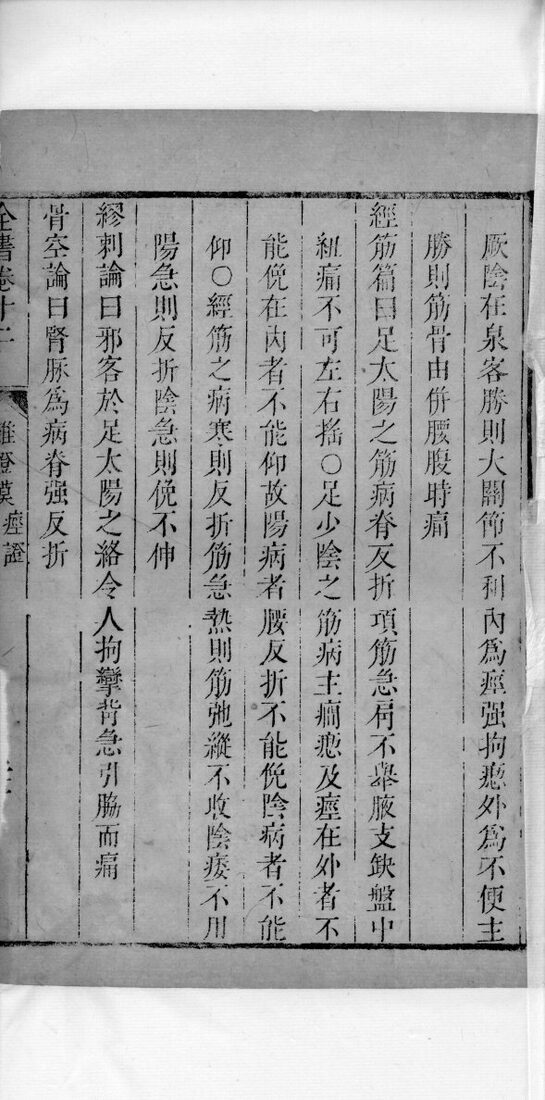 厥陰在泉客勝則大關節不利內爲痙强拘瘛外爲不便主
勝則筋骨由併腰腹時痛
經筋篇曰足太陽之筋病脊反折項筋急肩不舉腋支缺盤中
紐痛不可左右搖○足少陰之筋病主癎瘛及痙在外者不
能俛在內者不能仰故陽病者腰反折不能俛陰病者不能
仰○經筋之病寒則反折筋急熱則筋弛縱不收陰痿不用
陽急則反折陰急則俛不伸
繆刺論曰邪客於足太陽之絡令人拘攣背急引脇而痛
骨空論曰腎脉爲病脊强反折
全書卷十二 雜證謨 痙證